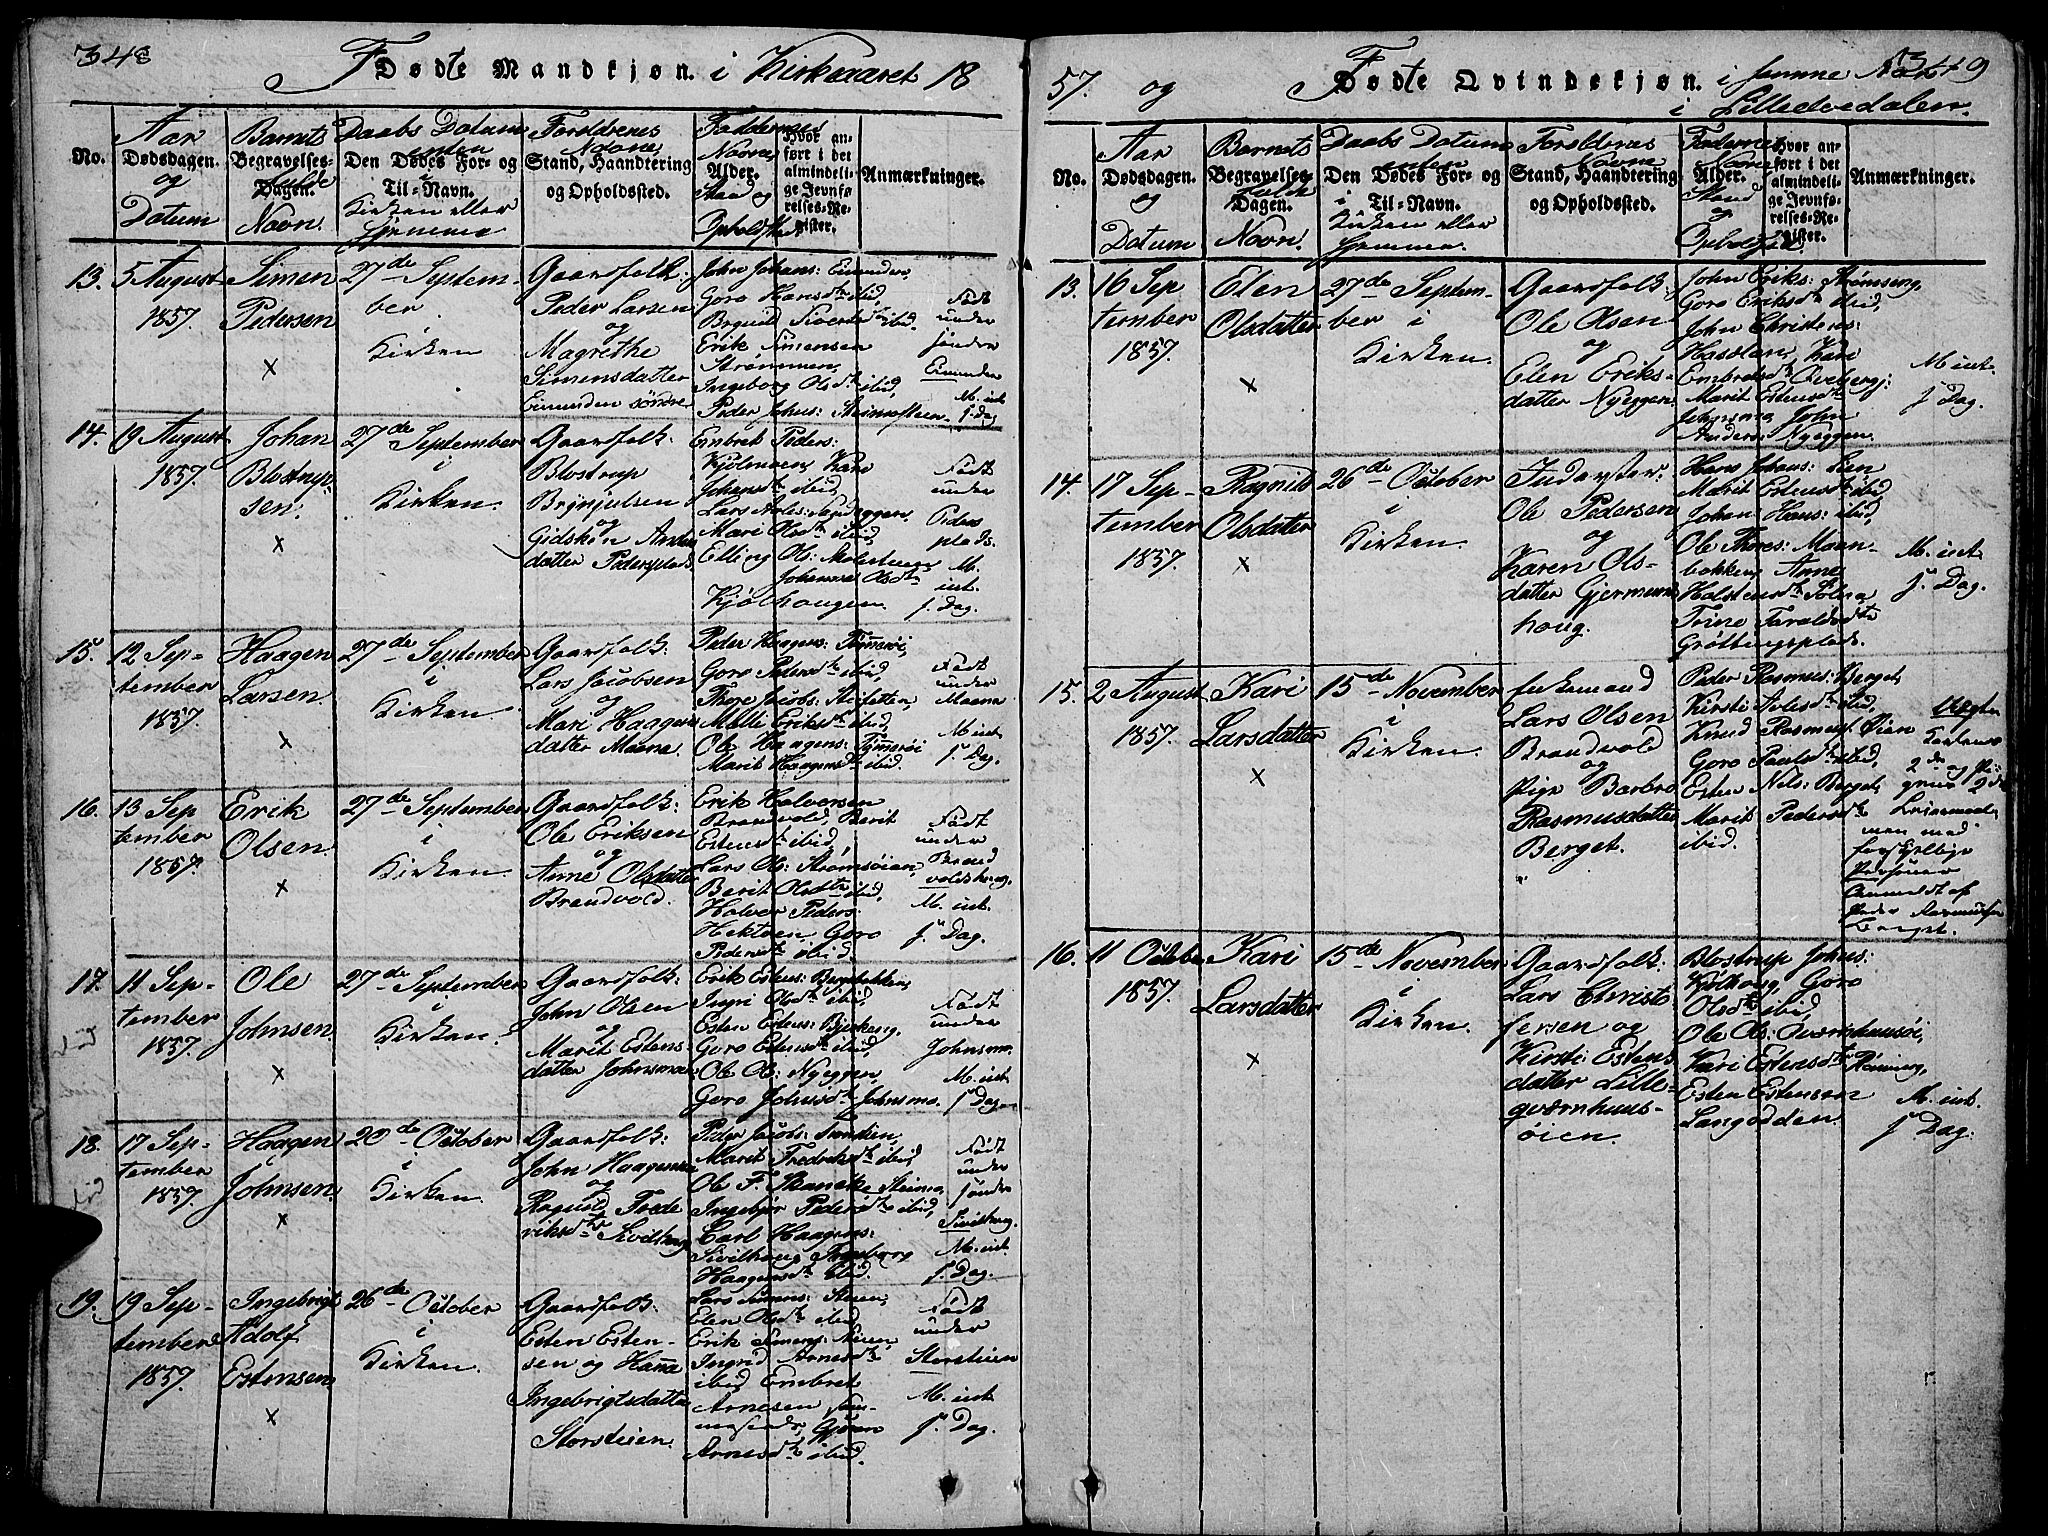 348
Fødte Mandkjøn. i Kirkeaaret 18
No.
Aar
Dødsdagen.
og
Datum
Barnets
Begravelses-
fulde
Dagen.
Navn.
Daabs Datum
enten
Den Dødes For- og
i
Til-Navn.
Kirken eller
Hjemme
Forældrenes
Navne
Stand, Haandtering
og Opholdssted.
Faddernes
Navne
Alder.
Stand og
Opholdsted
Hvor an-
ført i det
almindeli-
ge Jevnfø-
relses-Re-
gister.
Anmærkninger.
13.
5 August
1857.
Simen
Pedersen
×
27de Septem-
ber
Kirken
Gaardfolk:
Peder Larsen
og
Magrethe
Simensdatter
Eimunden søndre
John Johans: Eimunden,
Goro Hansdt ibid,
Sivertsdt ibid.
Erik Simensen
Strømmen,
Ingeborg Olsdt ibid,
Peder Johns:
Født
under
søndre
Eimunden
M. int.
s. Dag
14.
9 August
1857.
Johan
Blostrup-
sen.
×
27de September
i
Kirken.
Gaardfolk:
Blostrup
Brynjulsen
og
Gidsken Anders
datter Pedersplads
Embret Peders:
Kjølmoen, Kari
Johansdt ibid,
Mari Olsdt ibid,
Elling Ols:
Johanna Olsdt
Kjølhaugen.
Født
under
Peders
plads.
M.
int.
s. Dag.
15.
12 Sep-
tember
1857.
Haagen
Larsen
×
27de September
i
Kirken.
Gaardfolk:
Lars Jacobsen
og
Mari Haagens
datter Moene.
Peder Haagens: Tÿmmerøi,
Goro Pedersdt ibid,
Thore Jacobs:
Mille Eriksdt ibid,
Ole Haagens: Tÿmmerøi
Marit Haagensdt ibid.
Født
under
Moene
M. int.
s. Dag.
16.
13 Sep
tember
1857.
Erik
Olsen.
×
27de September
i
Kirken.
Gaardfolk:
Ole Eriksen
og
Anne Olsdatter
Brandvold.
Erik Halvorsen
Brandvold, Berit
Estensdt ibid,
Lars Ols: Strømsøien,
Berit Olsdt ibid,
Halvor Peders:
Hektoen, Goro
Pedersdt ibid
Født
under
Brand
voldshaug.
M. int.
s. Dag.
17.
11 Sep-
tember
1857.
Ole
Johnsen.
×
27de September
i
Kirken.
Gaardfolk:
John Olsen
og
Marit Estens-
datter Johnsmoe
Erik Estens:
Ingri Olsdt ibid,
Esten Estens: Bjerkeng,
Goro Estensdt ibid,
Ole Ols: Nyeggen,
Goro Johnsdt Johnsmo.
Født
under
Johnsmo.
M. int.
s. Dag.
18.
17 Sep-
tember
1857.
Haagen
Johnsen.
×
20de October
i
Kirken.
Gaardfolk:
John Haagensen
og
Ragnild Frede
riksdtr Sivilhaug
Peder Jacobs:
Marit Fredriksdt ibid,
Ole F.
Ingebjør Pedersdt ibid,
Carl Haagens:
Sivilhaug, Ingeborg
Haagensdt ibid.
Født
under
søndre
Sivilhaug.
M. int.
s. Dag.
19.
19 Sep-
tember
1857.
Ingebrigt
Adolf
Estensen
×
26de October
i
Kirken.
Gaardfolk:
Esten Esten-
sen og Hanna
Ingebrigtsdatter
Storsteien.
Lars Simens:
Elen Olsdt ibid,
Erik Simens:
Ingrid Arnesdt
ibid, Embret
Arnesen
Arnesdt ibid.
Født
under
Storsteien
M. int.
s. Dag.
57. og Fødte Qvindekjøn. i samme Aar
349
i Lilleelvedalen.
No.
Aar
Dødsdagen.
og
Datum
Barnets
Begravelses-
fulde
Dagen.
Navn.
Daabs Datum
enten
Den Dødes For- og
i
Til-Navn.
Kirken eller
Hjemme.
Forældrenes
Navne
Stand, Haandtering
og Opholdssted.
Faddernes
Navne
Alder.
Stand
og
Opholdsted
Hvor an-
ført i det
almindeli-
ge Jevnfø-
relses-Re-
gister.
Anmærkninger.
13.
16 Sep
tember
1857.
Elen
Olsdatter
×
27de Septem-
ber i
Kirken.
Gaardfolk:
Ole Olsen
og
Elen Eriks-
datter Nyeggen.
John Eriks: Strømseng,
Goro Eriksdt ibid,
John Christens:
Kari
Embretsdt Qveberg,
Marit Estensdt
Johnsmo, John
Anders: Nyeggen.
M. int.
s. Dag.
14.
17 Sep-
tember
1857.
Ragnild
Olsdatter
×
26de October
i
Kirken.
Inderster
Ole Pedersen
og
Karen Ols-
datter Gjermunds
houg.
Hans Johans: Lien
Marit Estensdt ibid,
Johan Hans: ibid,
Ole Thores: Moen-
bakken, Anne
Halstensdt
Trine Taraldsdt
Grøttingsplads.
M. int.
s. Dag.
15.
2 August
1857.
Kari
Larsdatter
×
15de November
i
Kirken.
Enkemand
Lars Olsen
Brandvold
og
Pige Barbro
Rasmusdatter
Berget.
Peder Rasmus: Berget,
Kirsti Arlesdt ibid,
Knud Rasmus: Øien
Goro Paulsdt ibid,
Esten Nils: Berget,
Marit Pedersdt
ibid.
Uægte
2den og Pi-
gens 2de
Leiermaal,
men med
forskjellige
Personer
Anmeldt af
Peder Rasmusen
Berget.
16.
11 October
1857.
Kari
Larsdatter
×
15de November
i
Kirken.
Gaardfolk:
Lars Christo
fersen og
Kirsti Estens
datter Lille-
qvernhuus-
øien.
Blostrup Johns:
Kjølhoug, Goro
Olsdt ibid,
Ole Ols: Qvernhuusøi,
Kari Estensdt Rønning,
Esten Estensen
Langodden.
M. int.
s. Dag.